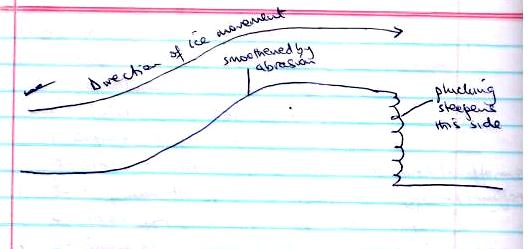 Direction of ice movement
smoothened by
abrasion
plucking
steepens
this side